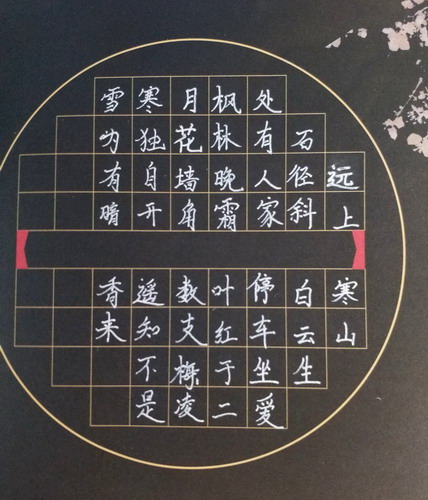 远上寒山
石径斜白云生
处有人家停车坐爱
枫林晚霜叶红于二
月花墙角数支梅凌
寒独自开遥知不是
雪为有暗香来